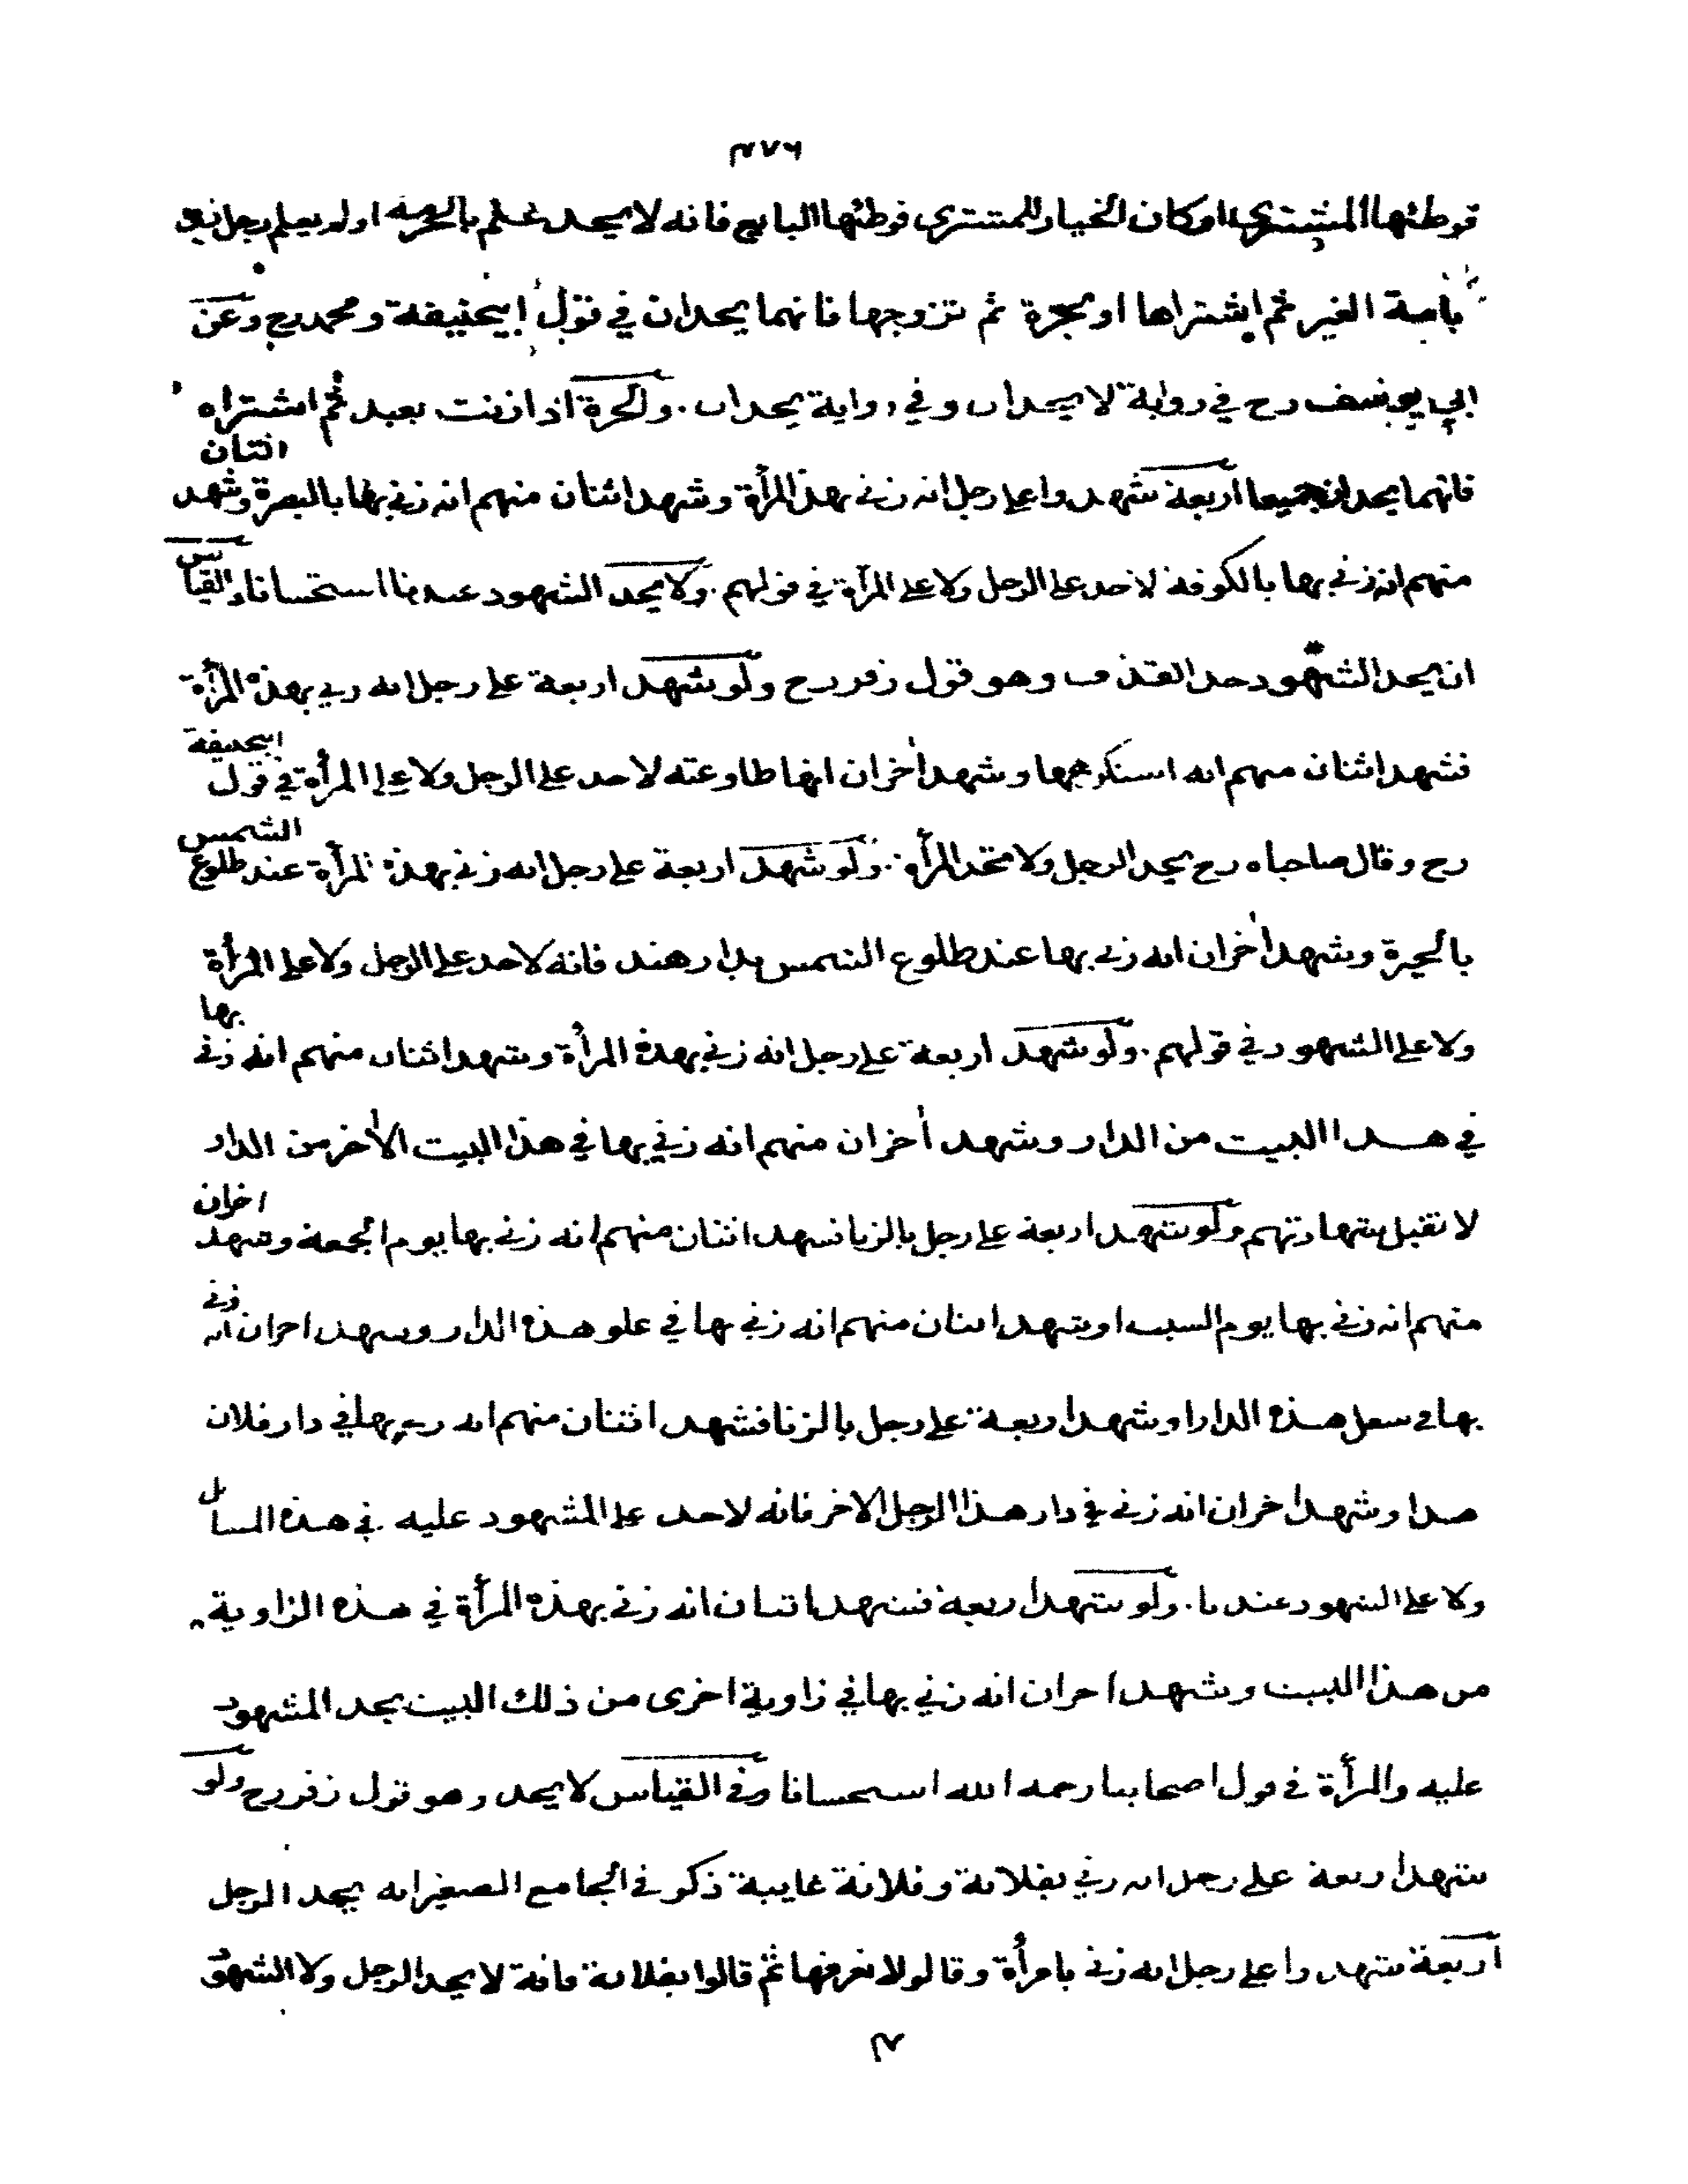 ٤٧٦
فوطئها المشتري او كان الخيار للمشتري فوطئها البايع فانه لا يحد علم بالحرمة او لم يعلم رجل زنى
بامة الغير ثم اشتراها او بحرة ثم تزوجها فانهما يحدان في قول ابيحنيفة ومحمد رح وعن
ابي يوسف رح في رواية لا يحدان وفي رواية يحدان . والحرة اذا زنت بعبد ثم اشتراه
فانهما يحدان جميعا اربعة شهدوا على رجل انه زنى بهذه المرأة وشهد اثنان منهم انه زنى بها بالبصرة وشهد اثنان
منهم انه زنى بها بالكوفة لا حد على الرجل ولا على المرآة في قولهم . ولا يحد الشهود عندنا استحسانا والقياس
ان يحد الشهود حد القذف وهو قول زفر رح ولو شهد اربعة على رجل انه زنى بهذه المرأة
فشهد اثنان منهم انه استكرهها وشهد اخران انها طاوعته لا حد على الرجل ولا على المرأة في قول ابيحنيفة
رح وقال صاحباه رح يحد الرجل ولا تحد المرأة . ولو شهد اربعة على رجل انه زنى بهذه المرأة عند طلوع الشمس
بالحيرة وشهد اخران انه زنى بها عند طلوع الشمس بدار هند فانه لا حد على الرجل ولا على المرأة
ولا على الشهود في قولهم . ولو شهد اربعة على رجل انه زنى بهذه المرأة وشهد اثنان منهم انه زنى بها
في هذا البيت من الدار وشهد أخران منهم انه زنى بها في هذا البيت الأخر من الدار
لا تقبل شهادتهم ولو شهد اربعة على رجل بالزنا فشهد اثنان منهم انه زنى بها يوم الجمعة وشهد اخران
منهم انه زنى بها يوم السبت او شهد اثنان منهم انه زنى بها في علو هذه الدار وشهد اخران انه زنى
بها في سفل هذه الدار او شهد اربعة على رجل بالزنا فشهد اثنان منهم انه زنى بها في دار فلان
هذا وشهد اخران انه زنى في دار هذا الرجل الاخر فانه لا حد على المشهود عليه في هذه المسائل
ولا على الشهود عندنا . ولو شهد اربعة فشهد اثنان انه زنى بهذه المرأة في هذه الزاوية
من هذا البيت وشهد اخران انه زنى بها في زاوية اخرى من ذلك البيت يحد المشهود
عليه والمرأة في قول اصحابنا رحمه الله استحسانا وفي القياس لا يحد وهو قول زفر رح ولو
شهد اربعة على رجل انه زنى بفلانة وفلانة غايبة ذكر في الجامع الصغير انه يحد الرجل
اربعة شهدوا على رجل انه زنى بامرأة وقالو لا نعرفها ثم قالوا بفلانة فانه لا يحد الرجل ولا الشهود